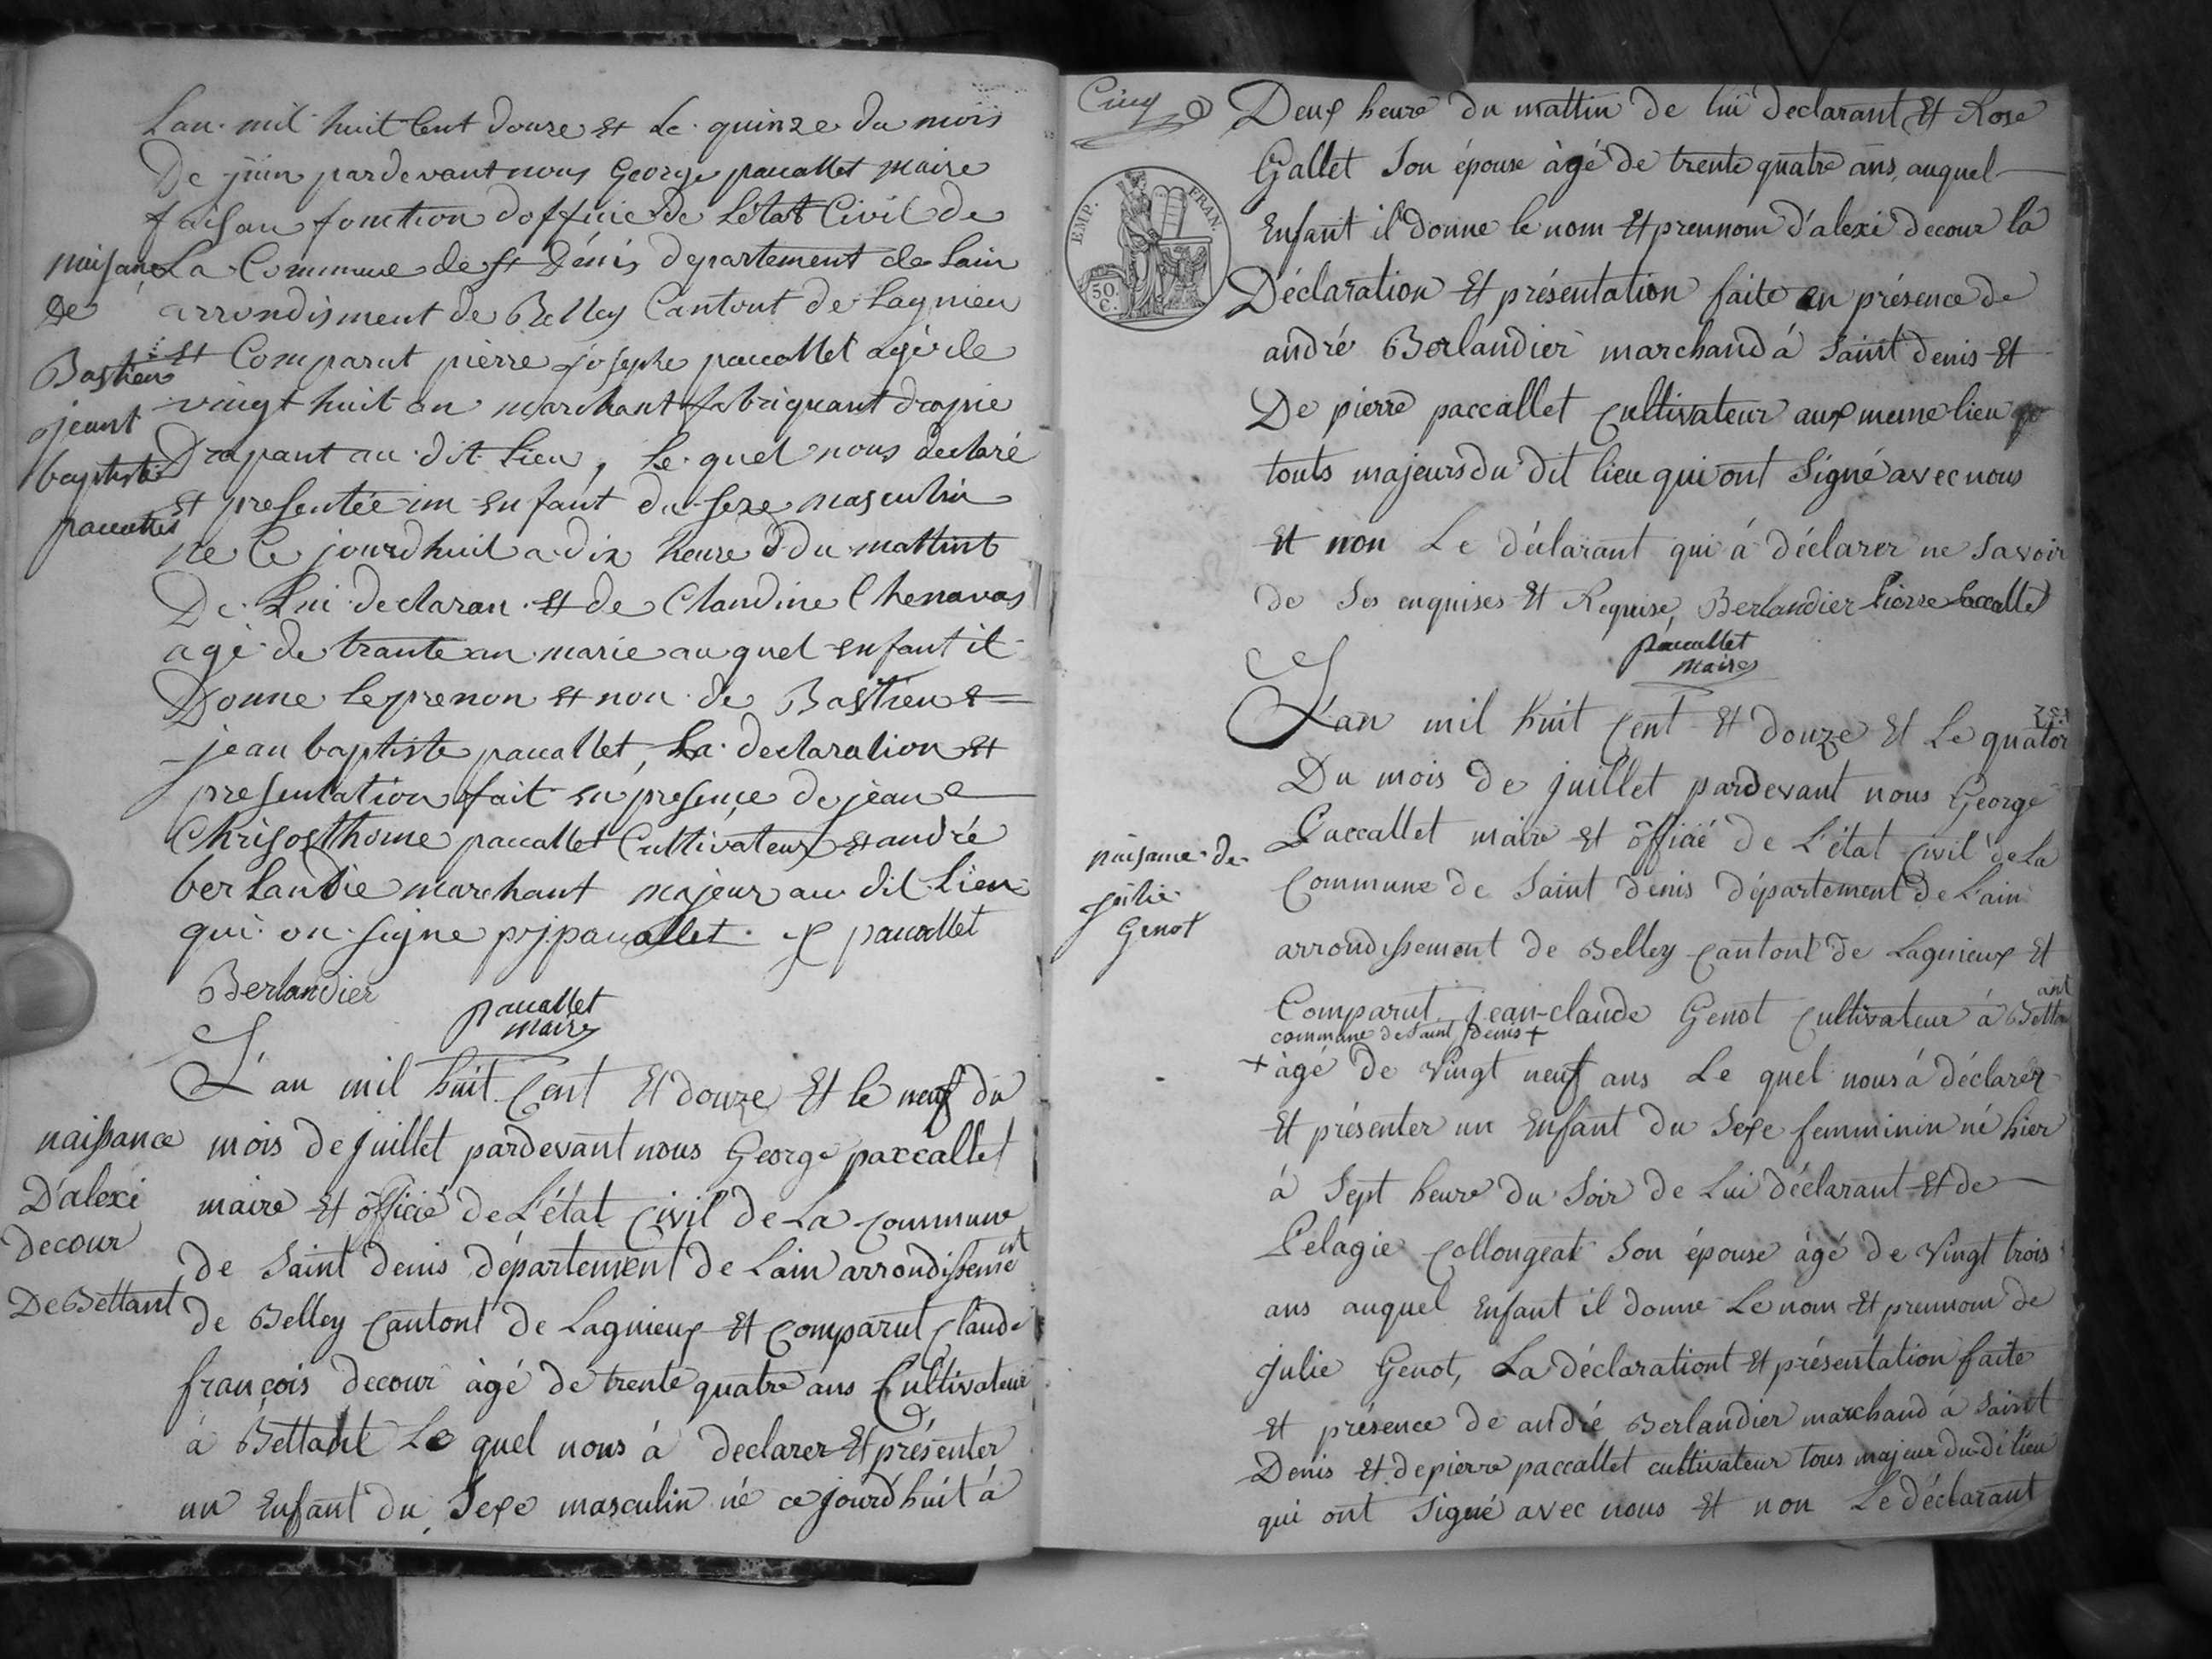 Lan mil huit Cent douze et Le quinze du mois
De juin pardevant nous George paccallet maire
faisan fonction dofficie de Létat Civil de
naisance La Commune de st Dénis departement de Lain
De arrondisment de Belley Cantont de Lagnieu
Bastien
jeant
baptiste
paccallet
et Comparut pierre josephe paccallet agé de
vingt huit an marchant fabriquant
Drapant au dit Lieu, Le quel nous declaré
et presentée un enfant du sexe masculin
ne Ce jourdhuit a dix heure du mattint
De Lui declaran et de Claudine Chenavas
agé de trante an marie au quel enfant it
Donne le prenon et non de Bastien
jean baptiste paccallet, La declaration et
presentation fait en presençe de jean
Chrisosthome paccallet Cultivateur et andré
berlandie marchant majeur au dit Lieu
qui on signe pjpaccallet paccallet
Berlandier
paccallet
maire
L'an mil huit Cent Et douze Et le neuf du
naissance
D'alexi
decour
De Bettant
mois de juillet pardevant nous George paccallet
maire Et officié de L'état Civil de La commune
de Saint denis département de Lain arrondissement
de Belley Cantont de Lagnieux Et Comparut Claude
françois decour àgé de trente quatre ans Cultivateur
à Bettant Le quel nous á declarer Et présenter
un Enfant du Sexe masculin né ce jourd'huit á
Cinq
EMP. FRAN.
50 C.
Deux heure du mattin de lui declarant Et Rose
Gallet Son épouse àgé de trente quatre ans, auquel
Enfant il donne le nom Et prennom d'alexi decour la
Déclaration Et présentation faite en présence de
andré Berlandier marchand á Saint denis Et
De pierre paccallet Cultivateur aux meme lieu
touts majeurs du dit lieu qui ont Signé avec nous
Et non Le déclarant qui á déclarer ne Savoir
de Ses enquises Et Requise, Berlandier Pierre Paccallet
paccallet
maire
L'an mil huit Cent Et douze Et Le quator
Du mois de juillet pardevant nous George
naisance de
julie
Genot
Paccallet maire Et officié de L'état Civil de La
Commune de Saint denis département de L'ain
arrondissement de Belley Cantont de Lagnieux Et
Comparut jean-claude Genot Cultivateur á Bettant
commune de Saint denis +
+ àgé de Vingt neuf ans Le quel nous á déclarer
Et présenter un Enfant du Sexe femminin né hier
á Sept heure du Soir de Lui déclarant Et de
Pelagie Collongeat Son épouse àgé de Vingt trois
ans auquel Enfant il donne Le nom Et prennom de
julie Genot, La déclarationt Et présentation faite
Et présence de andré Berlandier marchand á Saint
Denis Et de pierre paccallet cultivateur tous majeur du di lieu
qui ont Signé avec nous Et non Le déclarant